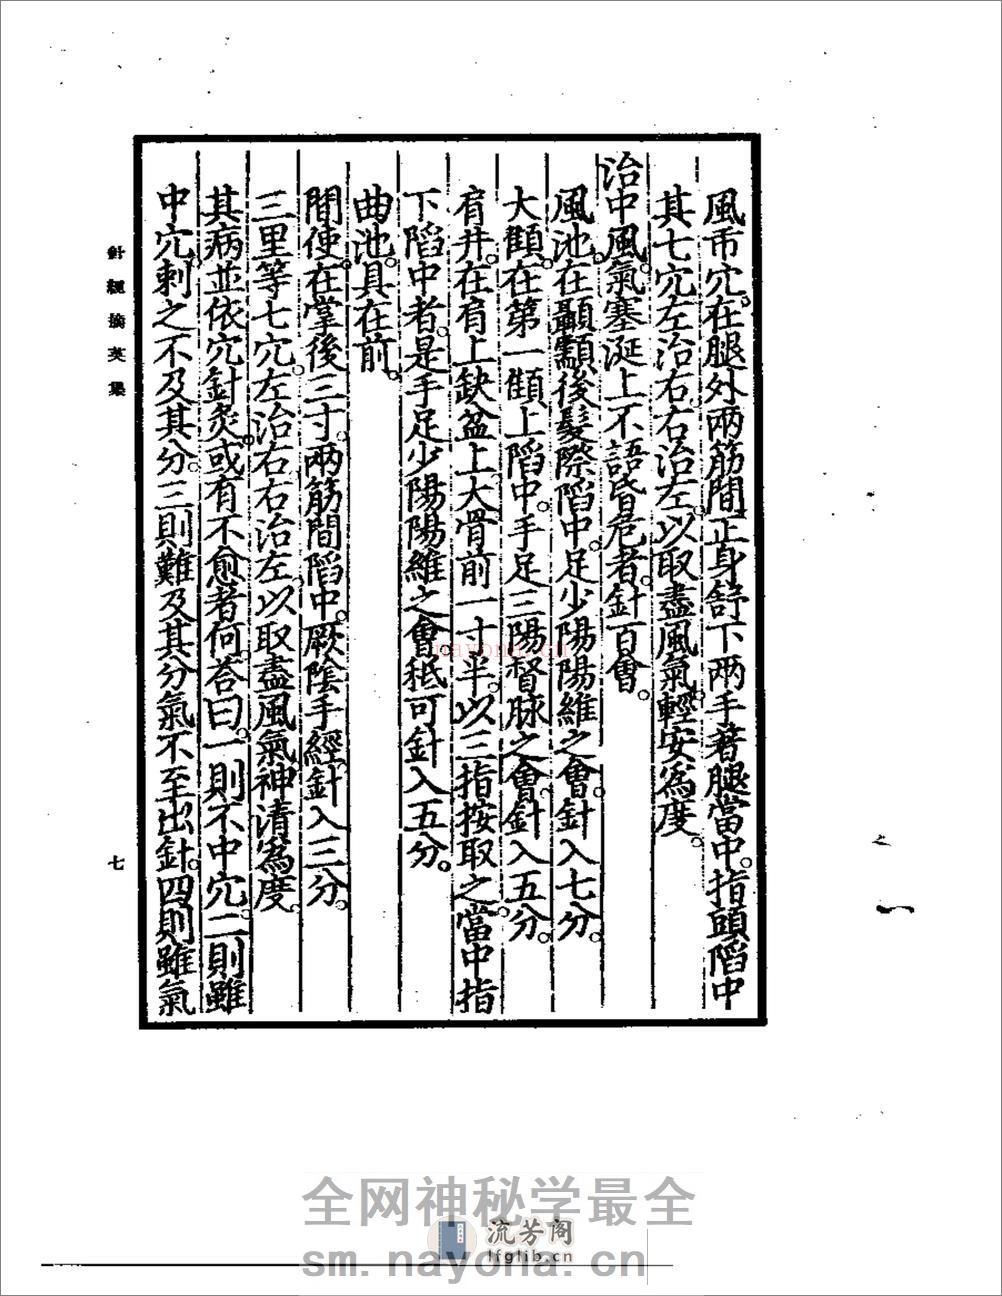 風市穴。在腿外兩筋間。正身舒下兩手著腿當中。指頭陷中
其七穴左治右。右治左。以取盡風氣。輕安爲度。
治中風。氣塞涎上不語昏危者。針百會。
風池。在顳顬後髮際陷中。足少陽陽維之會。針入七分。
大顀。在第一顀上陷中。手足三陽督脉之會。針入五分。
肩井。在肩上缺盆上大骨前一寸半。以三指按取之。當中指
下陷中者。是手足少陽陽維之會。秪可針入五分。
曲池。具在前。
間使。在掌後三寸。兩筋間陷中。厥陰手經。針入三分。
三里等七穴。左治右。右治左。以取盡風氣神清爲度。
其病並依穴針灸。或有不愈者何。荅曰。一則不中穴。二則雖
中穴。刺之不及其分。三則雖及其分氣不至出針。四則雖氣
針經摘英集
七
nayona.cn
全网神秘学最全
流芳阁
lfglib.cn
sm.nayona.cn